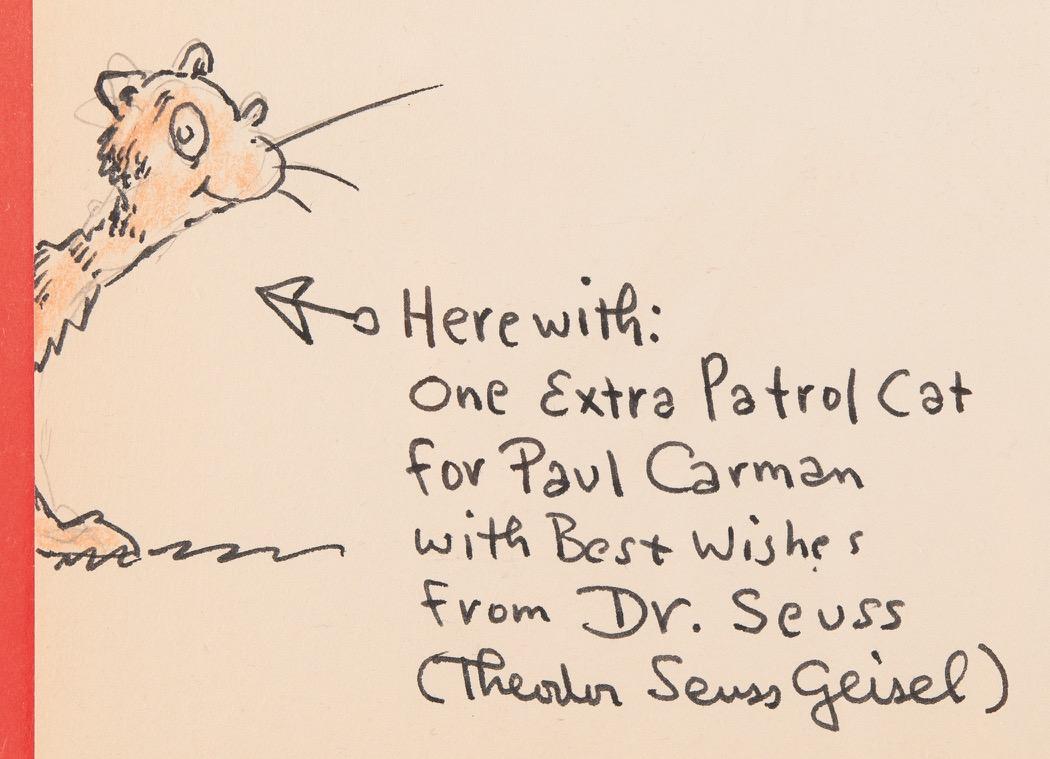 Herewith:
One Extra Patrol Cat
for Paul Carman
with Best Wishes
from Dr. Seuss
(Theodor Seuss Geisel)